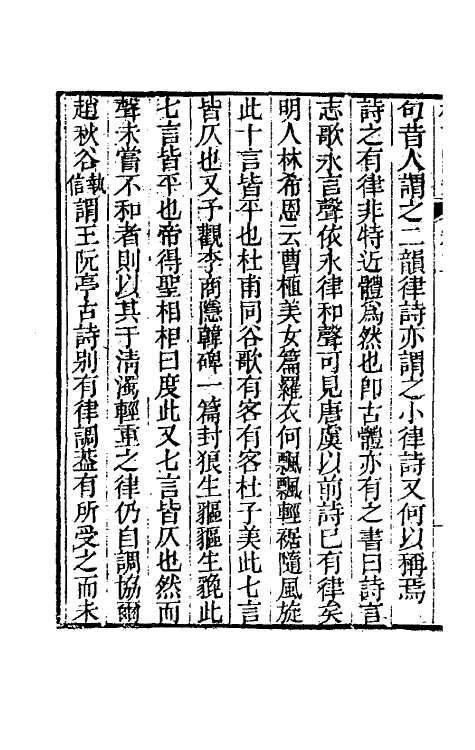 句昔人謂之二韻律詩亦謂之小律詩又何以稱焉
詩之有律非特近體爲然也卽古體亦有之書曰詩言
志歌永言聲依永律和聲可見唐虞以前詩已有律矣
明人林希恩云曹植美女篇羅衣何飄飄輕裾隨風旋
此十言皆平也杜甫同谷歌有客有客杜子美此七言
皆仄也又予觀李商隱韓碑一篇封狼生貙貙生貔此
七言皆平也帝得聖相相曰度此又七言皆仄也然而
聲未嘗不和者則以其于清濁輕重之律仍自調協爾
趙秋谷執信謂王阮亭古詩別有律調葢有所受之而未